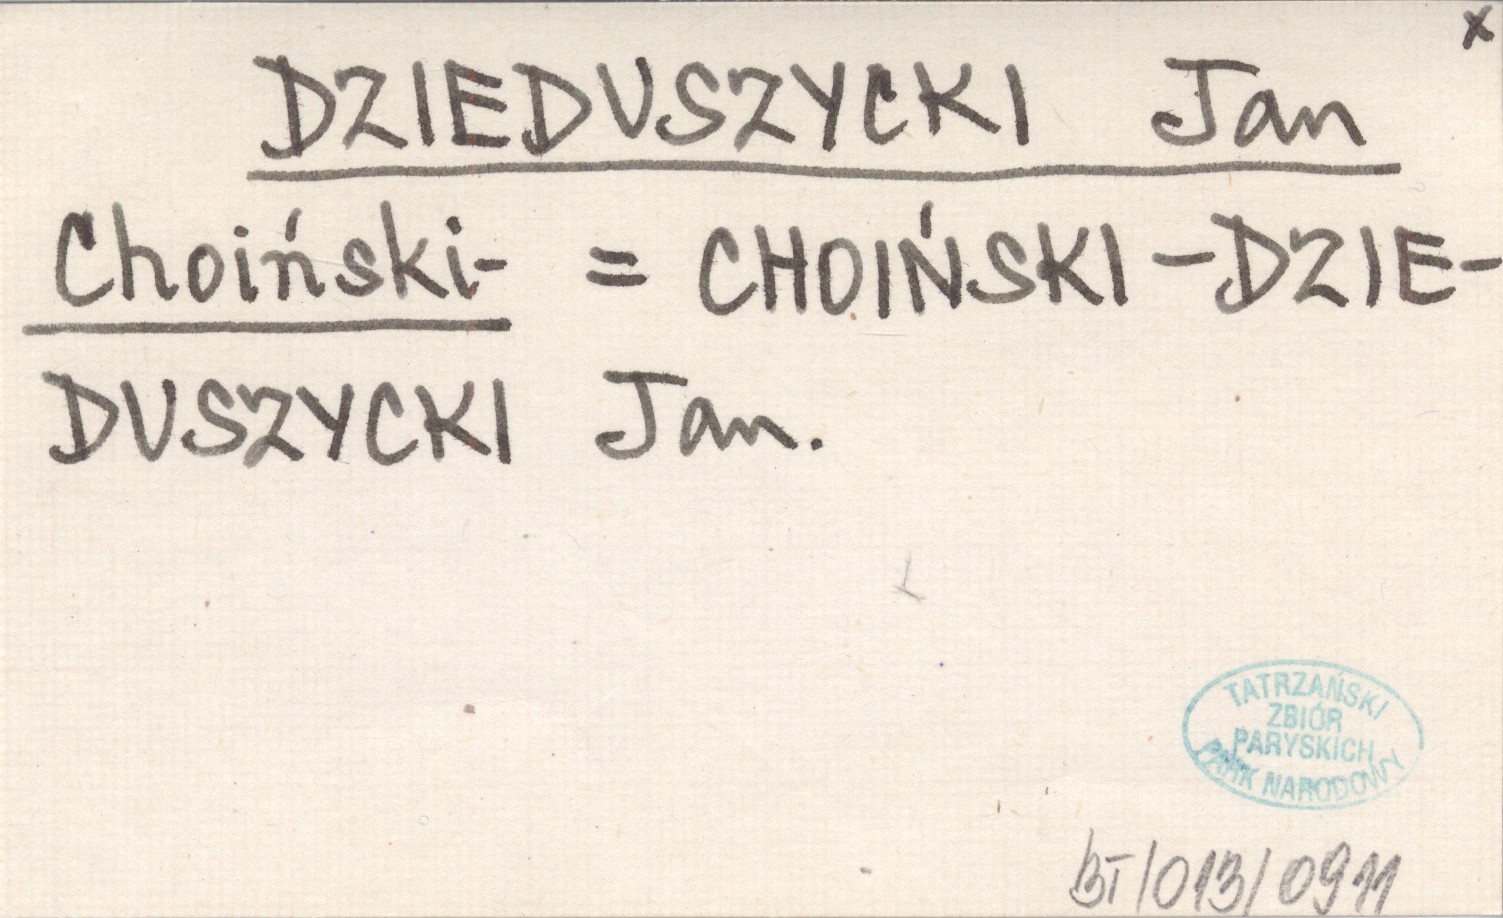 x
DZIEDUSZYCKI Jan
Choiński- = CHOIŃSKI-DZIE-
DUSZYCKI Jan.
TATRZAŃSKI
ZBIÓR
PARYSKICH
PARK NARODOWY
BT/013/0911